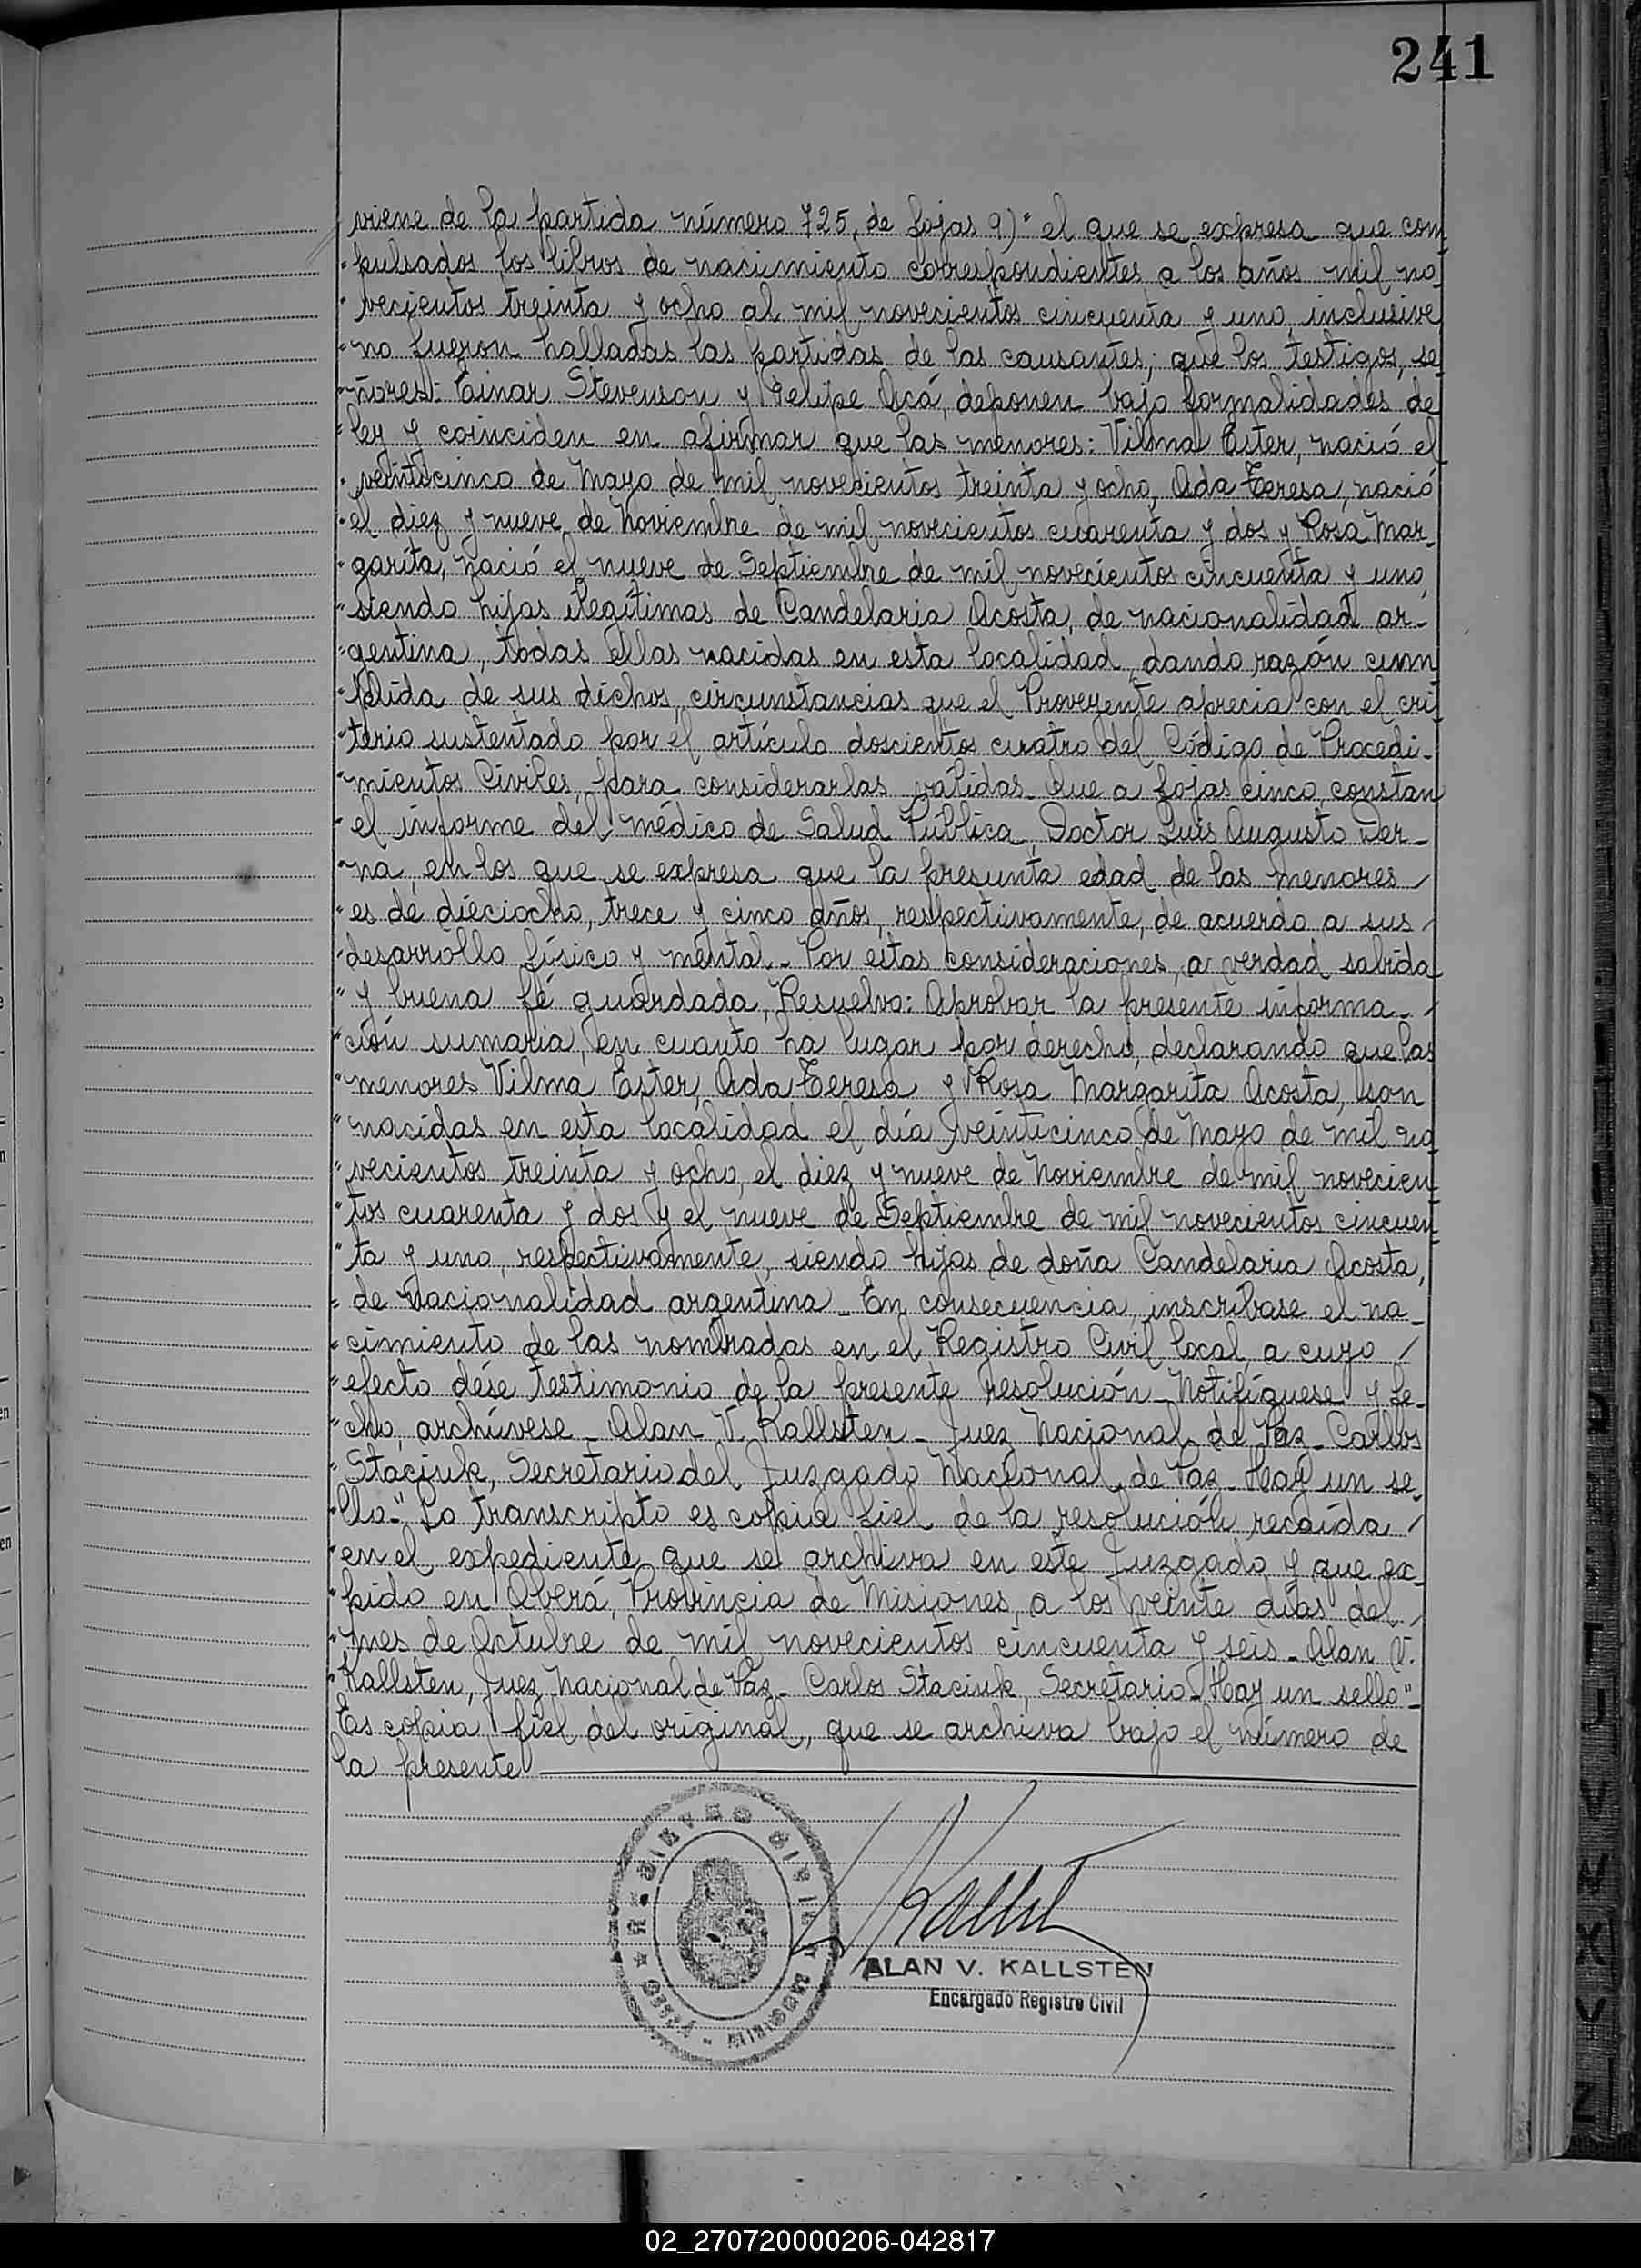 241
viene de la partida número 725, de fojas 9)" el que se expresa que com
"pulsados los libros de nacimiento correspondientes a los años mil no
"vecientos treinta y ocho al mil novecientos cincuenta y uno, inclusive
"no fueron halladas las partidas de las causantes; que los testigos, se
"ñores: Einar Stevenson y Felipe Acá, deponen bajo formalidades de
"ley y coinciden en afirmar que las menores: Vilma Ester, nació el
"veinticinco de Mayo de mil novecientos treinta y ocho, Ada Teresa, nació
"el diez y nueve de Noviembre de mil novecientos cuarenta y dos y Rosa Mar-
"garita, nació el nueve de Septiembre de mil novecientos cincuenta y uno,
"siendo hijas ilegítimas de Candelaria Acosta, de nacionalidad ar-
"gentina, todas ellas nacidas en esta localidad, dando razón cum
"plida de sus dichos, circunstancias que el Proveyente aprecia con el cri
"terio sustentado por el artículo doscientos cuatro del Código de Procedi-
"mientos Civiles, para considerarlas válidas. Que a fojas cinco, constan
"el informe del médico de Salud Pública, Doctor Luis Augusto Der-
"na, en los que se expresa que la presunta edad de las menores /
"es de dieciocho, trece y cinco años, respectivamente, de acuerdo a sus /
"desarrollo físico y mental - Por estas consideraciones, a verdad sabida
"y buena fé guardada, Resuelvo: Aprobar la presente informa- /
"ción sumaria, en cuanto ha lugar por derecho, declarando que las
"menores Vilma Ester, Ada Teresa y Rosa Margarita Acosta, son
"nacidas en esta localidad el día veinticinco de Mayo de mil no
"vecientos treinta y ocho, el diez y nueve de Noviembre de mil novecien
"tos cuarenta y dos y el nueve de Septiembre de mil novecientos cincuen
"ta y uno, respectivamente, siendo hijas de doña Candelaria Acosta,
"de nacionalidad argentina - En consecuencia, inscríbase el na-
"cimiento de las nombradas en el Registro Civil local, a cuyo /
"efecto dése testimonio de la presente resolución - Notifíquese y fe-
"cho, archívese - Alan V. Kallsten - Juez Nacional de Paz - Carlos
"Staciuk, Secretario del Juzgado Nacional de Paz - Hay un se-
"llo-" Lo transcripto es copia fiel de la resolución recaída /
"en el expediente que se archiva en este Juzgado y que ex-
"pido en Oberá, Provincia de Misiones, a los veinte días del /
"mes de Octubre de mil novecientos cincuenta y seis - Alan V.
"Kallsten, Juez Nacional de Paz - Carlos Staciuk, Secretario - Hay un sello"-
Es copia fiel del original, que se archiva bajo el número de
la presente
ALAN V. KALLSTEN
Encargado Registro Civil
02_270720000206-042817